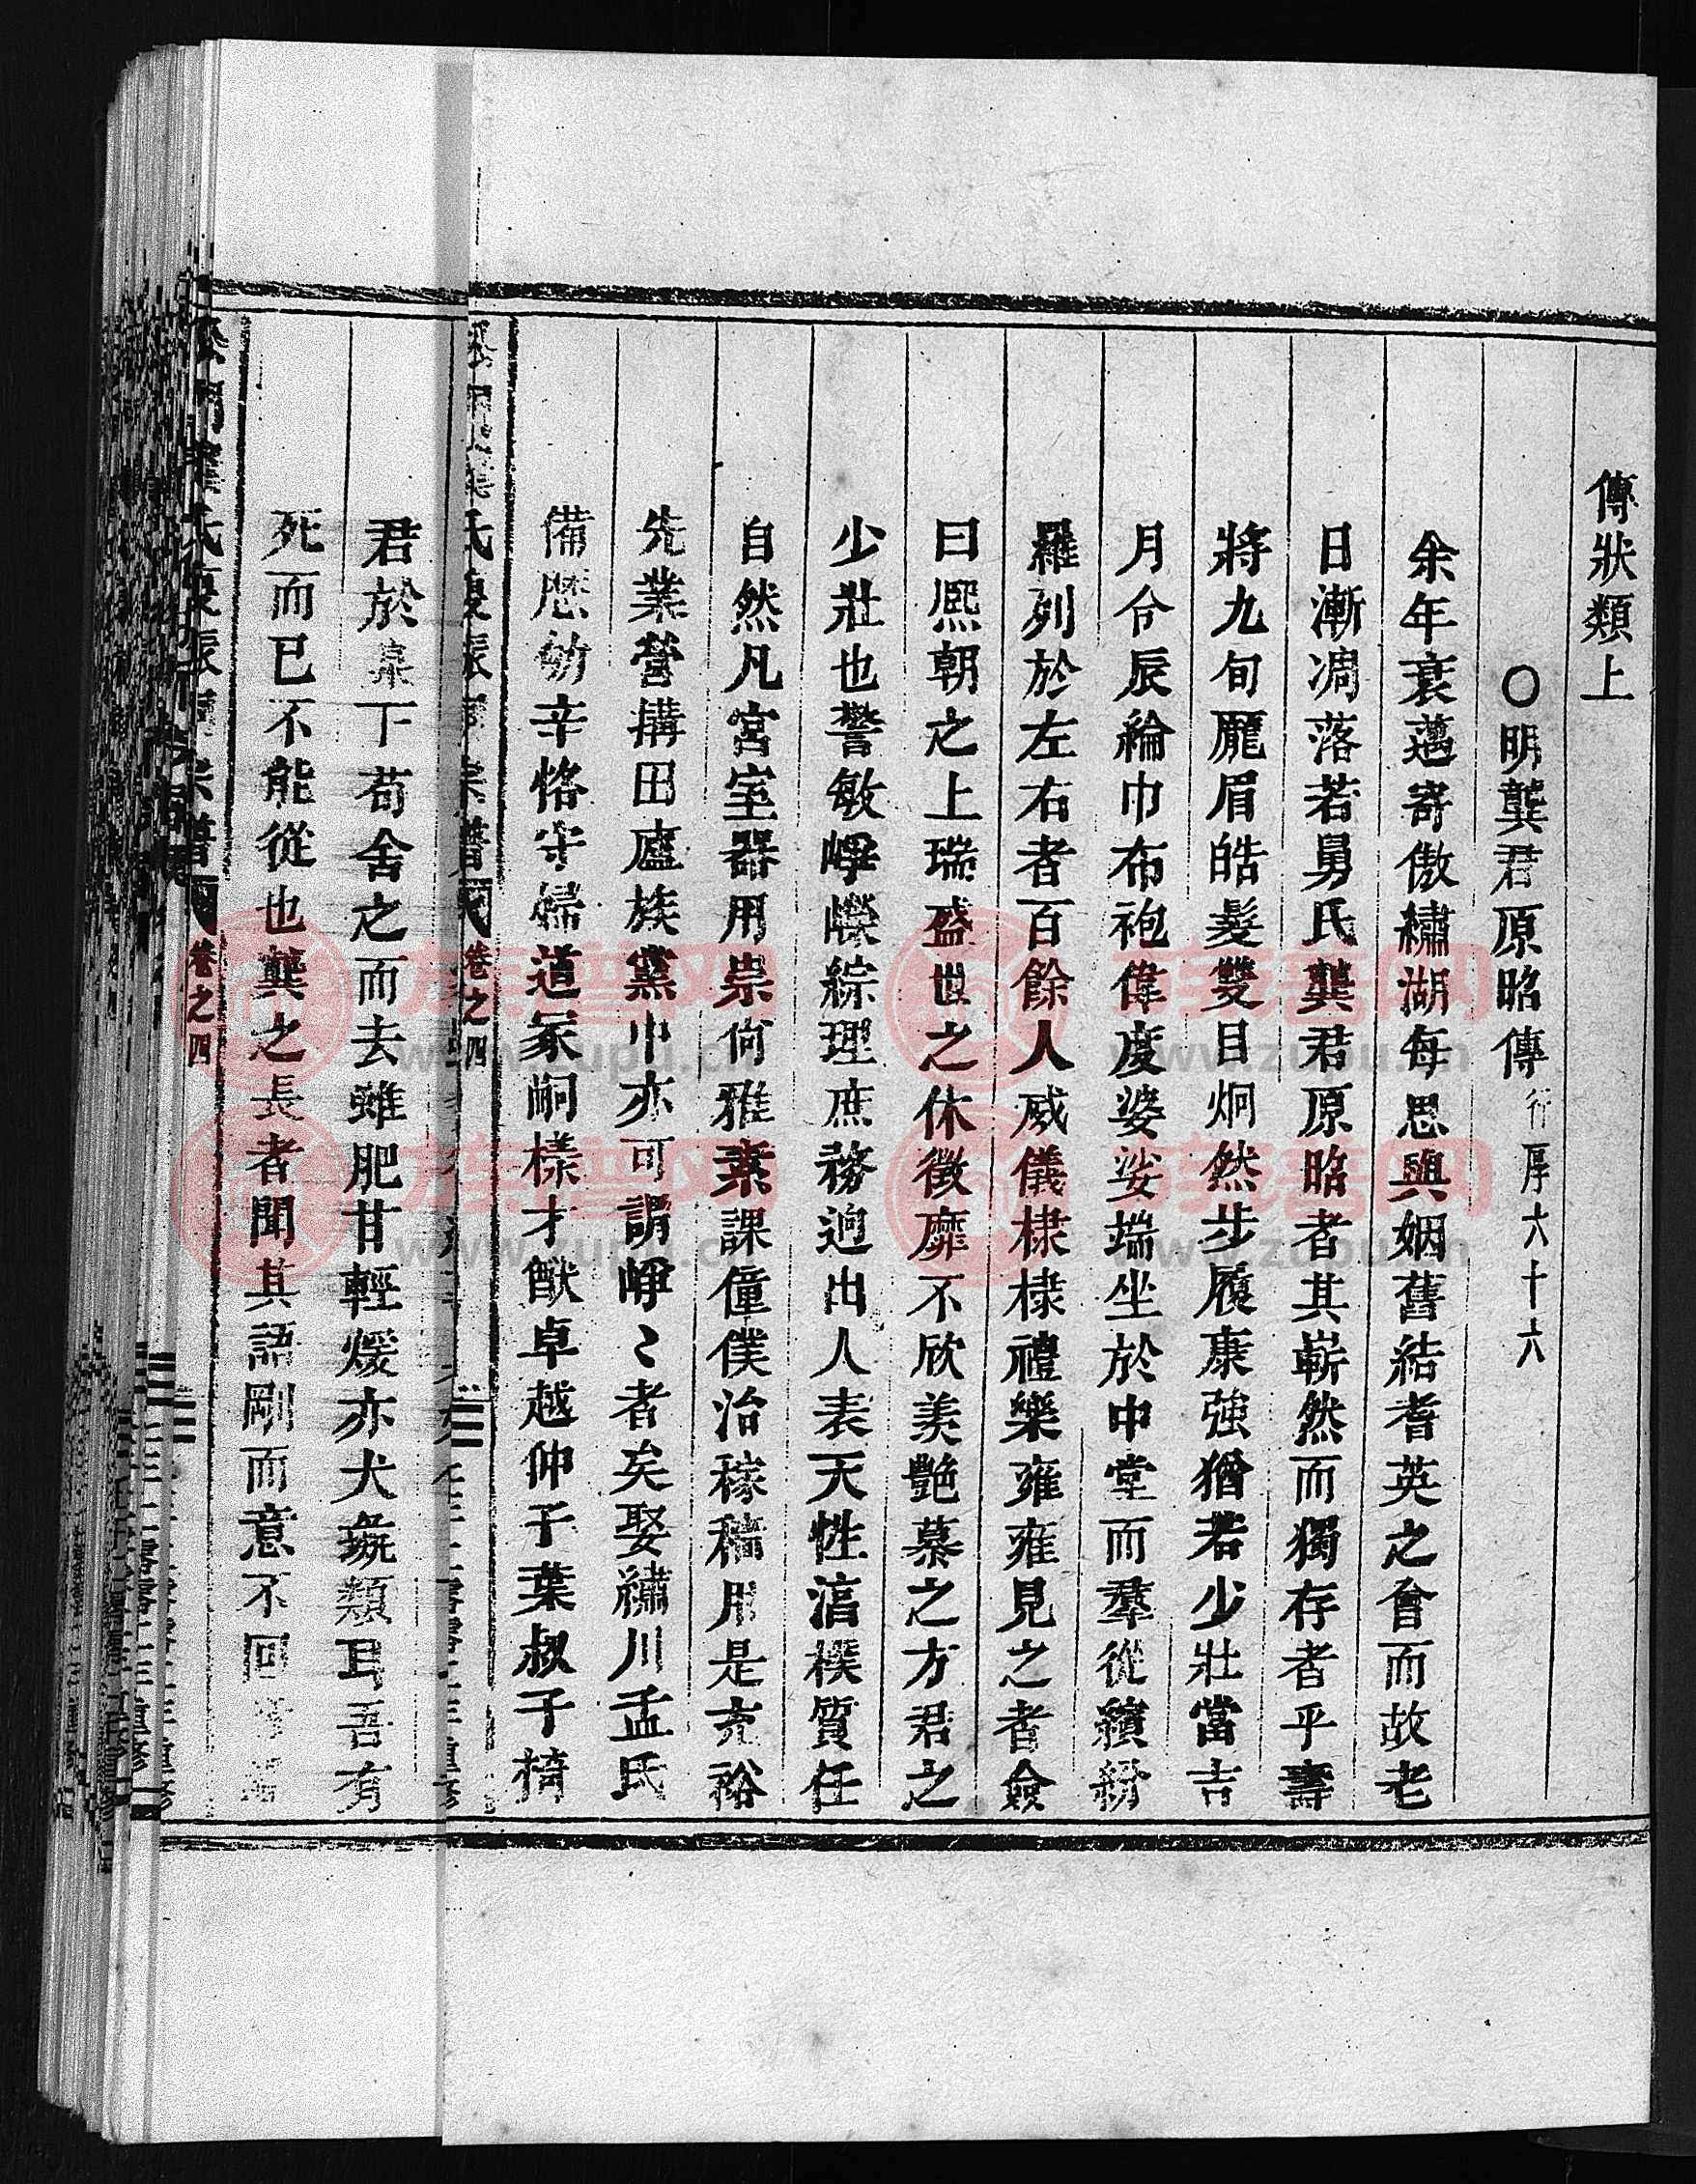 傳狀類上
○明龔君原昭傳 行厚六十六
余年衰邁寄傲繡湖每思與姻舊結耆英之會而故老
日漸凋落若舅氏龔君原昭者其嶄然而獨存者乎壽
將九旬厖眉皓髮雙目炯然步履康強猶若少壯當吉
月令辰綸巾布袍偉度婆娑端坐於中堂而羣從繽紛
羅列於左右者百餘人威儀棣棣禮樂雍雍見之者僉
曰熈朝之上瑞盛世之休徵靡不欣羡艷慕之方君之
少壯也警敏崢嶸綜理庶務迥出人表天性湻樸質任
自然凡宮室器用崇尚雅素課僮僕治稼穡用是充裕
先業營搆田廬族黨中亦可謂崢〻者矣娶繡川孟氏
備歴劬辛恪守婦道冢嗣樣才猷卓越仲子葉叔子椅
氏 宗譜 卷之四
君於 下苟舍之而去雖肥甘輕煖亦犬彘類耳吾有
死而已不能從也龔之長者聞其語剛而意不回
氏 宗譜 卷之四
万家谱网
www.zupu.cn
万家谱网
www.zupu.cn
万家谱网
www.zupu.cn
万家谱网
www.zupu.cn